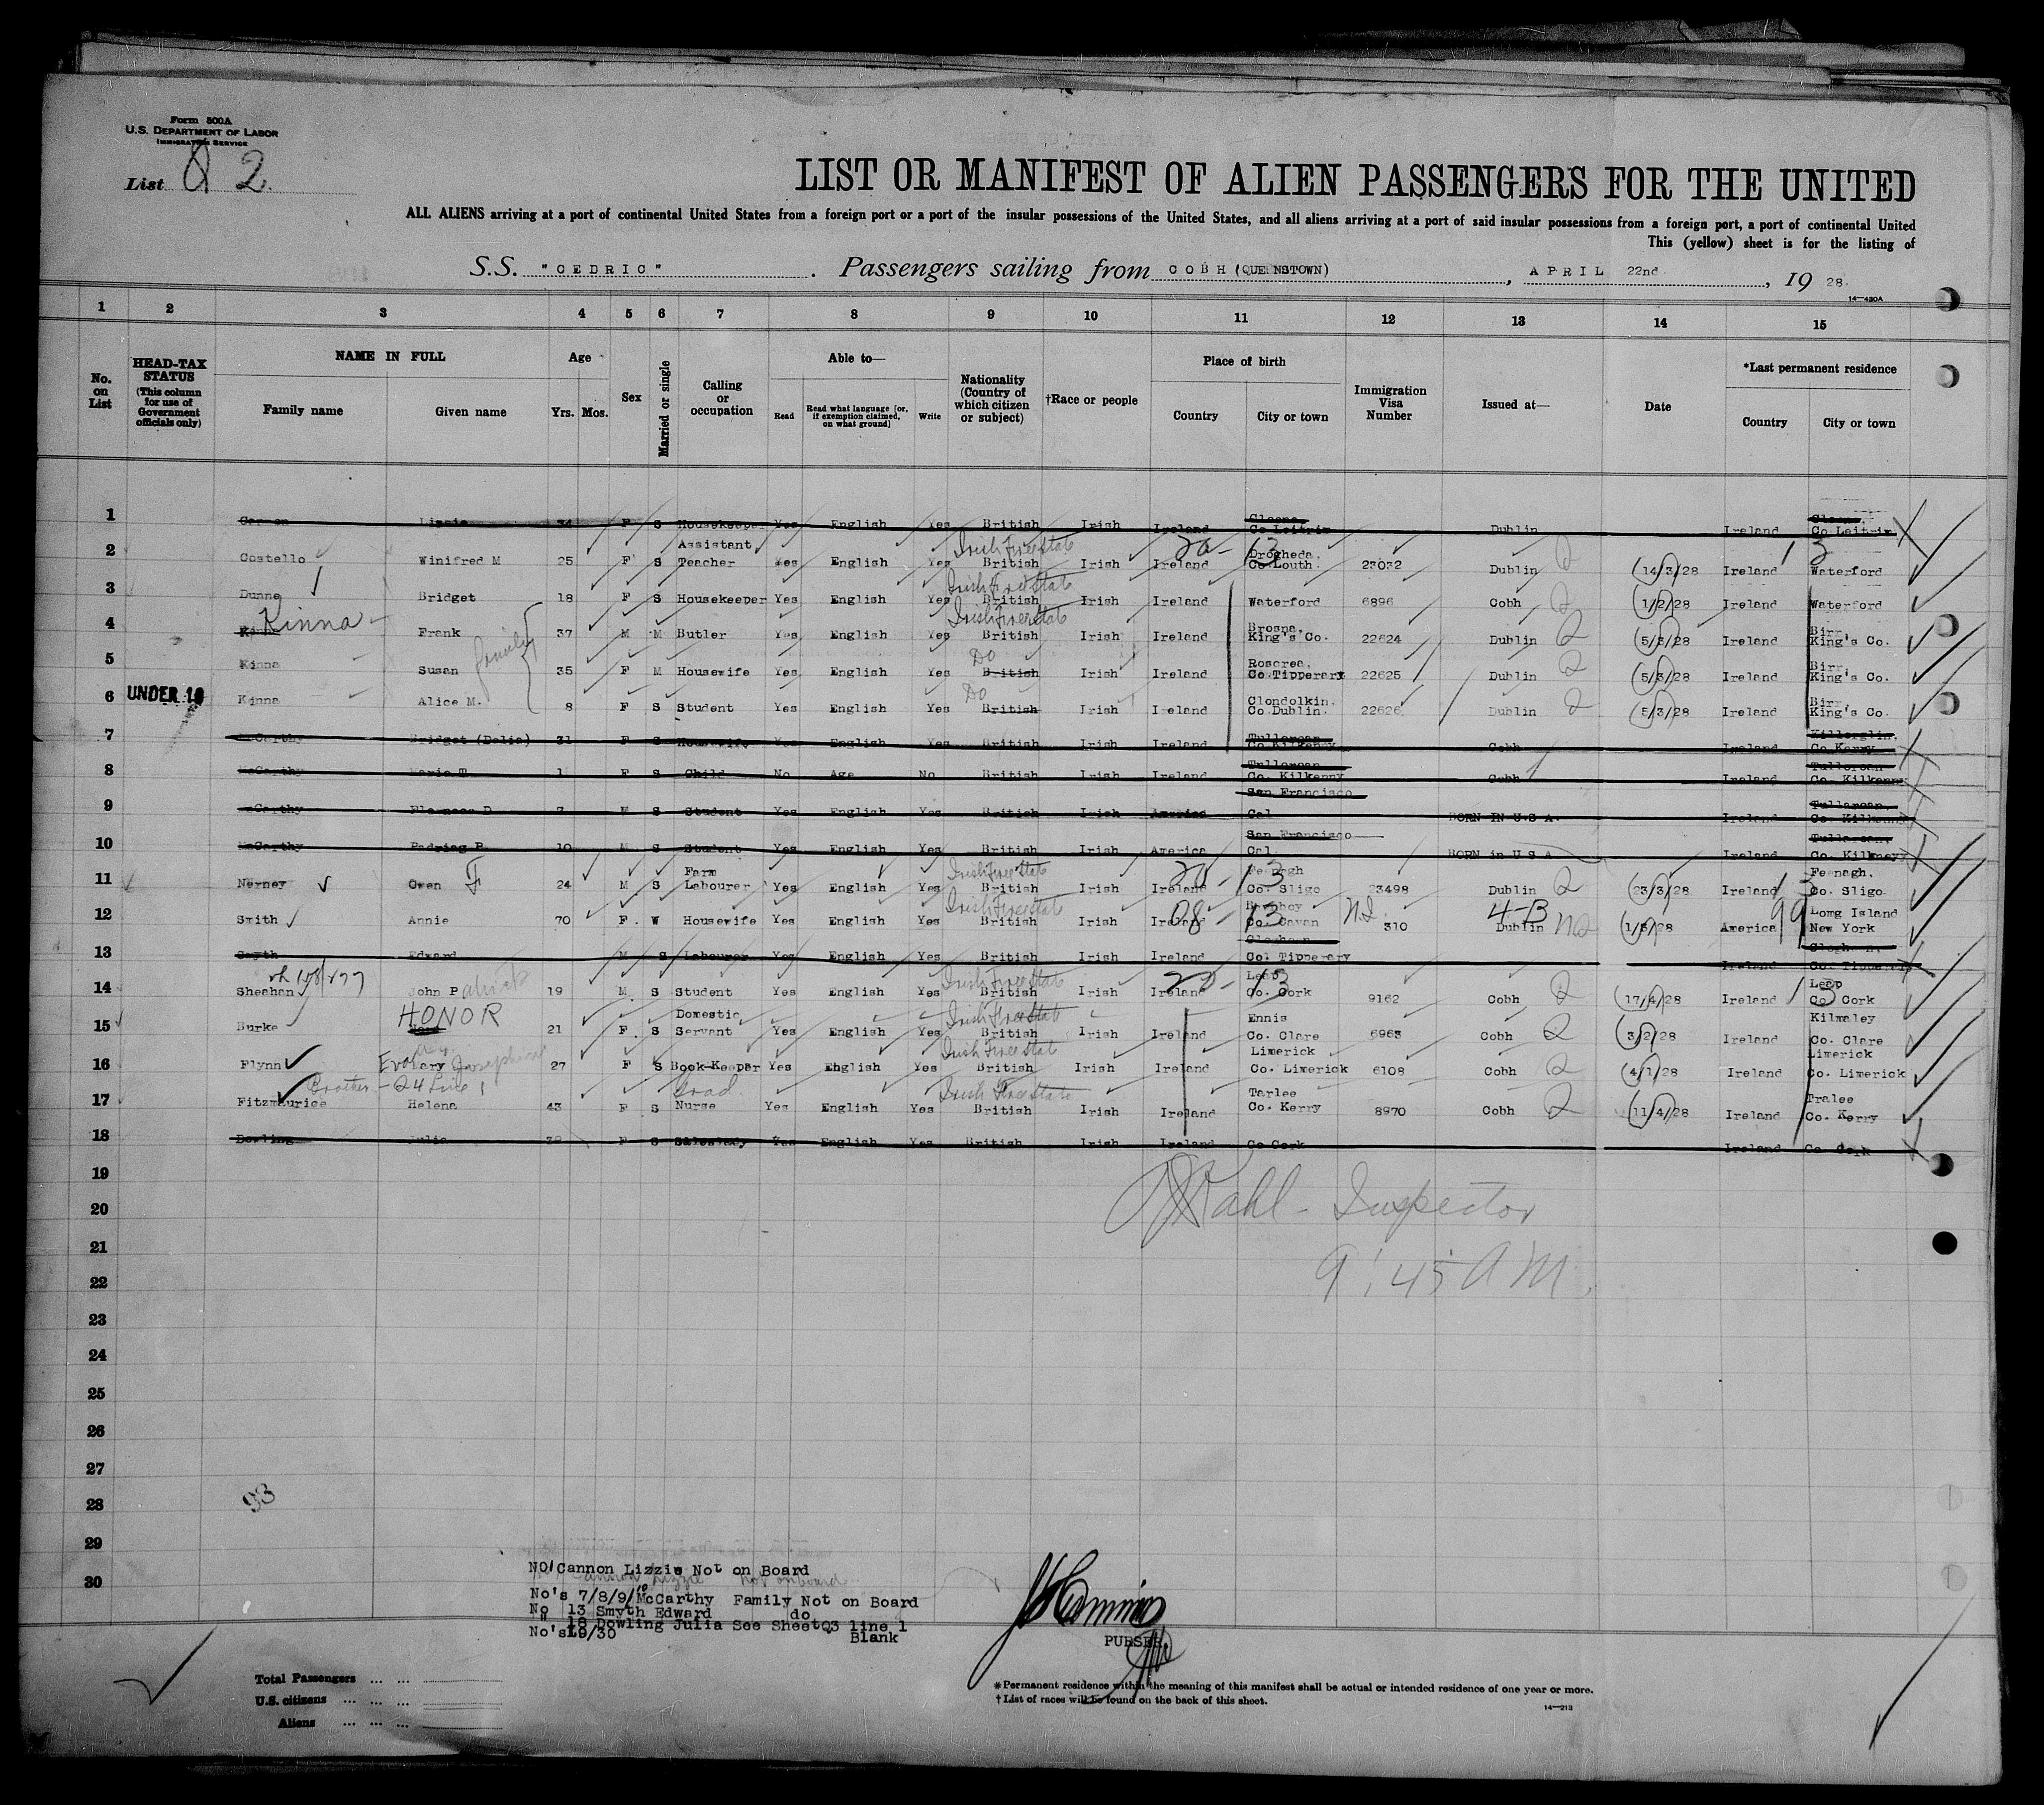 Form 500A
U.S. DEPARTMENT OF LABOR
IMMIGRATION SERVICE
List 2.
LIST OR MANIFEST OF ALIEN PASSENGERS FOR THE UNITED
ALL ALIENS arriving at a port of continental United States from a foreign port or a port of the insular possessions of the United States, and all aliens arriving at a port of said insular possessions from a foreign port, a port of continental United
This (yellow) sheet is for the listing of
S.S. "CEDRIC" . Passengers sailing from COBH (QUEENSTOWN) , APRIL 22nd. , 19 28.
14-430A
1 2 3 4 5 6 7 8 9 10 11 12 13 14 15
No. on List
HEAD-TAX STATUS (This column for use of Government officials only)
NAME IN FULL
Family name Given name
Age Yrs. Mos.
Sex
Married or single
Calling or occupation
Able to—
Read Read what language [or, if exemption claimed, on what ground] Write
Nationality (Country of which citizen or subject)
†Race or people
Place of birth
Country City or town
Immigration Visa Number
Issued at—
Date
*Last permanent residence
Country City or town
1 Lizzie 34 F S Housekeeper Yes English Yes British Irish Ireland Cloone, Co Leitrim Dublin Ireland Cloone, Co Leitrim
2 Costello Winifred M 25 F S Assistant Teacher Yes English Yes Irish Free State British Irish Ireland 20-13 Drogheda. Co Louth. 23032 Dublin 2 14/3/28 Ireland 13 Waterford
3 Dunne Bridget 18 F S Housekeeper Yes English Yes Irish Free State British Irish Ireland Waterford 6896 Cobh 2 1/2/28 Ireland Waterford
4 Kinna Frank 37 M M Butler Yes English Yes Irish Free State British Irish Ireland Brosna, King's Co. 22624 Dublin 2 5/3/28 Ireland Birr, King's Co.
family
5 Kinna Susan 35 F M Housewife Yes English Yes Do British Irish Ireland Roscrea, Co Tipperary 22625 Dublin 2 5/3/28 Ireland Birr, King's Co.
6 UNDER 16 Kinna Alice M. 8 F S Student Yes English Yes Do British Irish Ireland Clondolkin, Co Dublin. 22626 Dublin 2 5/3/28 Ireland Birr, King's Co.
7 McCarthy Bridget (Delia) 31 F S Housewife Yes English Yes British Irish Ireland Tullaroan, Co Kilkenny Cobh Ireland Killorglin, Co Kerry
8 McCarthy Marie T. 1 F S Child No Age No British Irish Ireland Tullaroan Co. Kilkenny Cobh Ireland Tullaroan Co. Kilkenny
9 McCarthy Florence D 7 M S Student Yes English Yes British Irish America San Francisco Cal BORN IN U.S A. Ireland Tullaroan, Co. Kilkenny
10 McCarthy Padriag P. 10 M S Student Yes English Yes British Irish America San Francisco Cal. BORN in U S A Ireland Tullaroan, Co. Kilkneyy
11 Nerney Owen F 24 M S Farm Labourer Yes English Yes Irish Free State British Irish Ireland 20-13 Feenagh Co. Sligo 23498 Dublin 2 23/3/28 Ireland 13 Feenagh. Co. Sligo
12 Smith Annie 70 F. W Housewife Yes English Yes Irish Free State British Irish Ireland 08-13 Co. Cavan 310 4-B Dublin 1/5/28 America 99 Long Island New York
13 Smyth Edward M S Labourer Yes English Yes British Irish Ireland Clogheen Co. Tipperary Ireland Clogheen, Co. Tipperary
14 Sheehan John Patrick 19 M. S Student Yes English Yes Irish Free State British Irish Ireland 20-13 Leap Co. Cork 9162 Cobh 2 17/4/28 Ireland 13 Leap Co Cork
15 Burke HONOR 21 F. S Domestic Servant Yes English Yes Irish Free State British Irish Ireland Ennis Co. Clare 6963 Cobh 2 3/2/28 Ireland Kilmaley Co. Clare
16 Flynn Mary Josephine 27 F S Book-Keeper Yes Ehglish Yes Irish Free State British Irish Ireland Limerick Co. Limerick 6108 Cobh 2 4/1/28 Ireland Limerick Co. Limerick
Brother - 24 Line 1
17 Fitzmaurice Helena 43 F S Grad Nurse Yes English Yes Irish Free State British Irish Ireland Tarlee Co. Kerry 8970 Cobh 2 11/4/28 Ireland Tralee Co. Kerry
18 Dowling Julia 38 F S Saleslady Yes English Yes British Irish Ireland Co Cork Ireland Co. Cork
19
20 Inspector
21
22 9:45 AM.
23
24
25
26
27
28 93
29
30
NO 1 Cannon Lizzie Not on Board
No's 7/8/9/10 McCarthy Family Not on Board
No 13 Smyth Edward do
" 18 Dowling Julia See Sheet Q3 line 1
No's 19/30 Blank
PURSER
Total Passengers ... ...
U.S. citizens ... ... ...
Aliens ... ... ...
*Permanent residence within the meaning of this manifest shall be actual or intended residence of one year or more.
†List of races will be found on the back of this sheet.
14-213